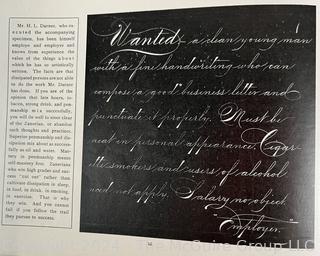 Mr. H. L. Darner, who ex-
ecuted the accompanying
specimen, has been himself
employe and employer and
knows from experience the
value of the things about
which he has so artistically
written. The facts are that
dissipated persons are not able
to do the work Mr. Darner
has done. If you are of the
opinion that late hours, to-
bacco, strong drink, and pen-
manship as a successfully,
you will do well to steer clear
of the Zanerian, or abandon
such thoughts and practices.
Superior penmanship and dis-
sipation mix about as success-
fully as oil and water. Mas-
tery in penmanship means
self-mastery too. Zanerians
who win high grades and suc-
cess "cut out" rather than
cultivate dissipation in sleep,
in food, in drink, in smoking,
in exercise. That is why
they win. And you cannot
fail if you follow the trail
they pursue to success.
Wanted, a clean young man
with a fine handwriting who can
compose a good business letter and
punctuate it properly. Must be
neat in personal appearance. Cigar-
ette smokers and users of alcohol
need not apply. Salary no object.
"Employer."
Group LLC